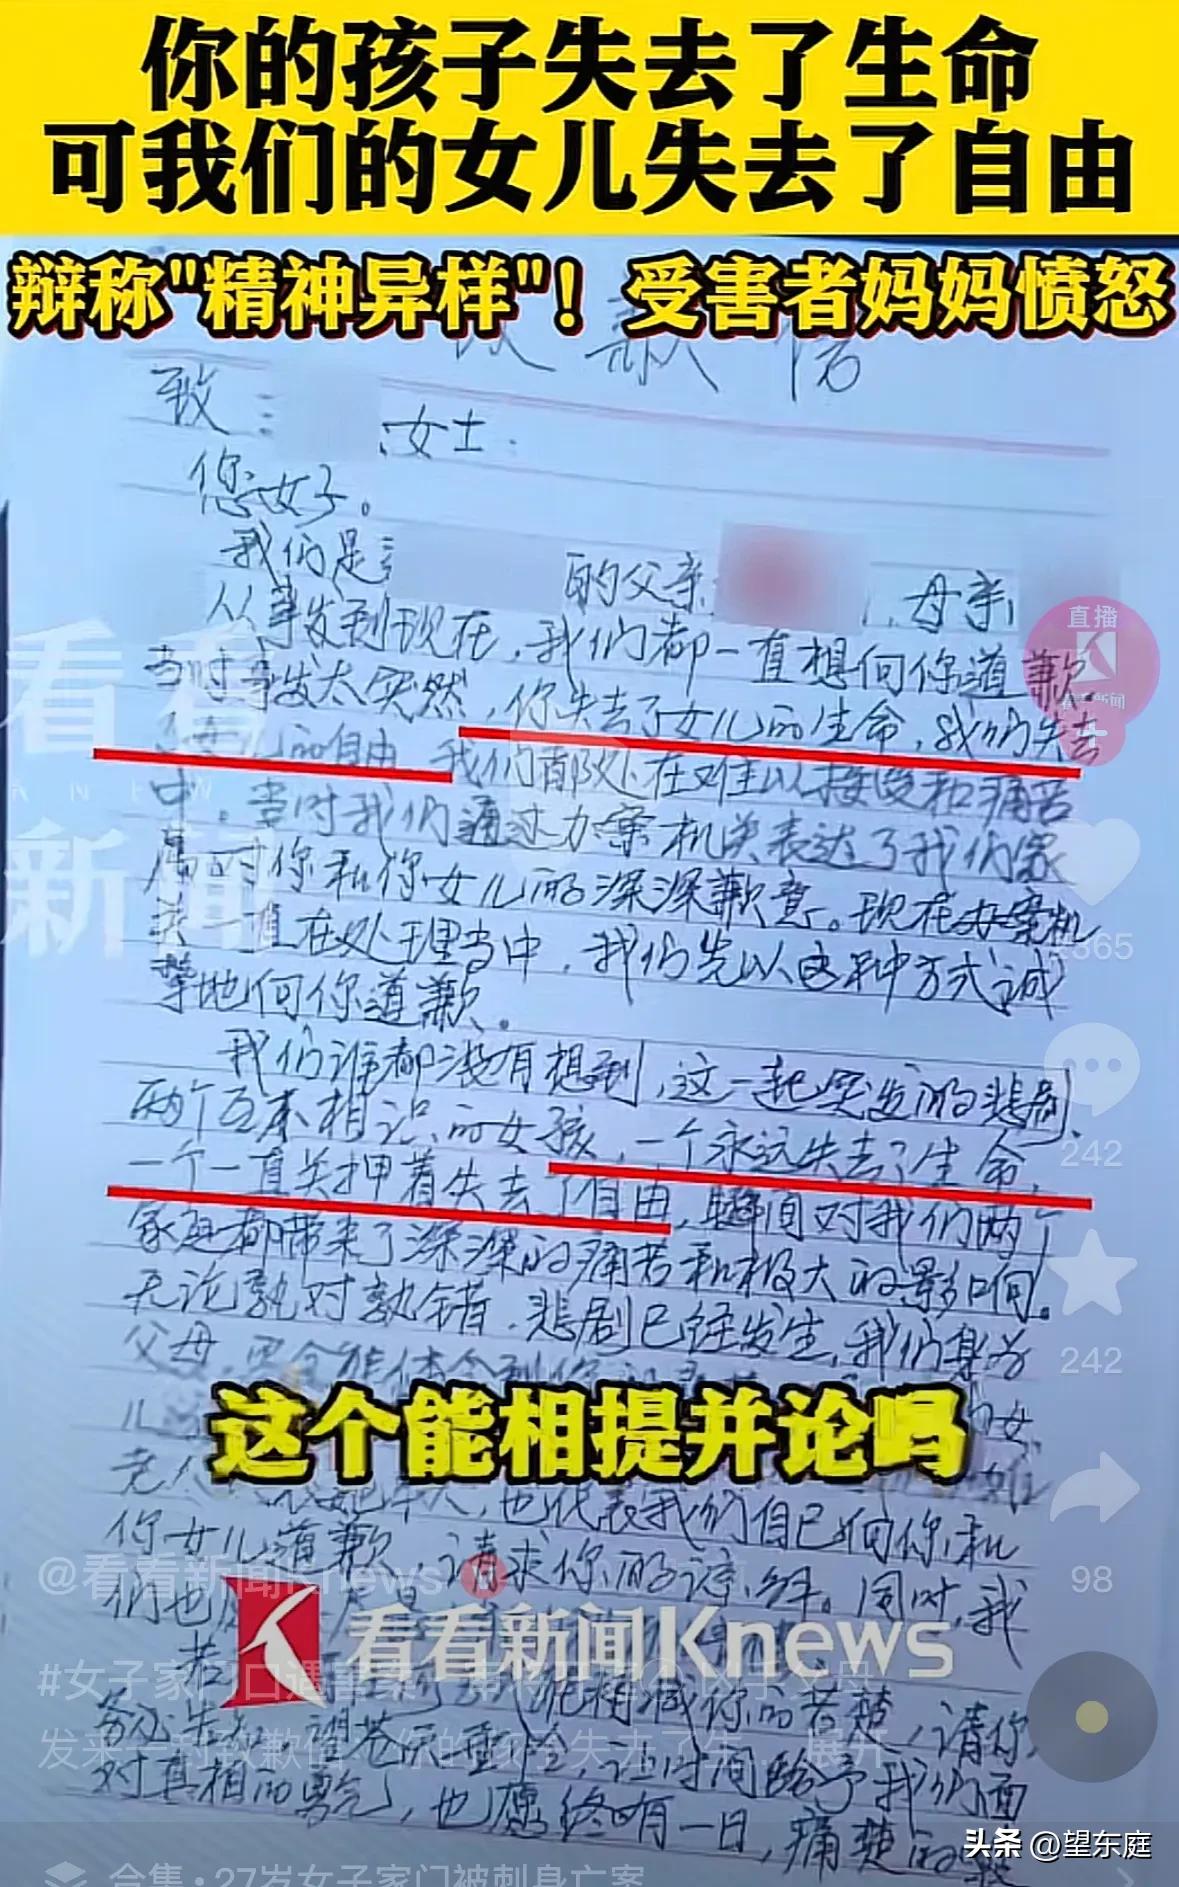 你的孩子失去了生命
可我们的女儿失去了自由
辩称"精神异样"！受害者妈妈愤怒
致歉信
致：
女士：
您好。
我们是
的父亲
，母亲
直播
从事发到现在，我们都一直想向你道歉。
看看
当时事发太突然，你失去了女儿的生命，我们失去
了女儿的自由
我们都处在难以接受和痛苦
KNEWS
中。当时我们通过办案机关表达了我们家
新闻
属对你和你女儿的深深歉意。现在办案机
关一直在处理当中，我们先以这种方式诚
2365
挚地向你道歉。
我们谁都没有想到，这一起突发的悲剧、
两个互不相识的女孩，一个永远失去了生命，
242
一个一直关押着失去了自由，瞬间对我们两个
家庭都带来了深深的痛苦和极大的影响。
无论孰对孰错，悲剧已经发生，我们身为
242
父母，
这个能相提并论吗
也代表我们自己向你和
你女儿道歉，请求你的谅解。同时，我
98
们也
@看看新闻Knews
看看新闻Knews
#女子家门口遇害案
你的苦楚，请你
发来一封致歉信
展开
让时间给予我们面
对真相的勇气，也愿终有一日，痛楚的
头条 @望东庭
合集：27岁女子家门被刺身亡案